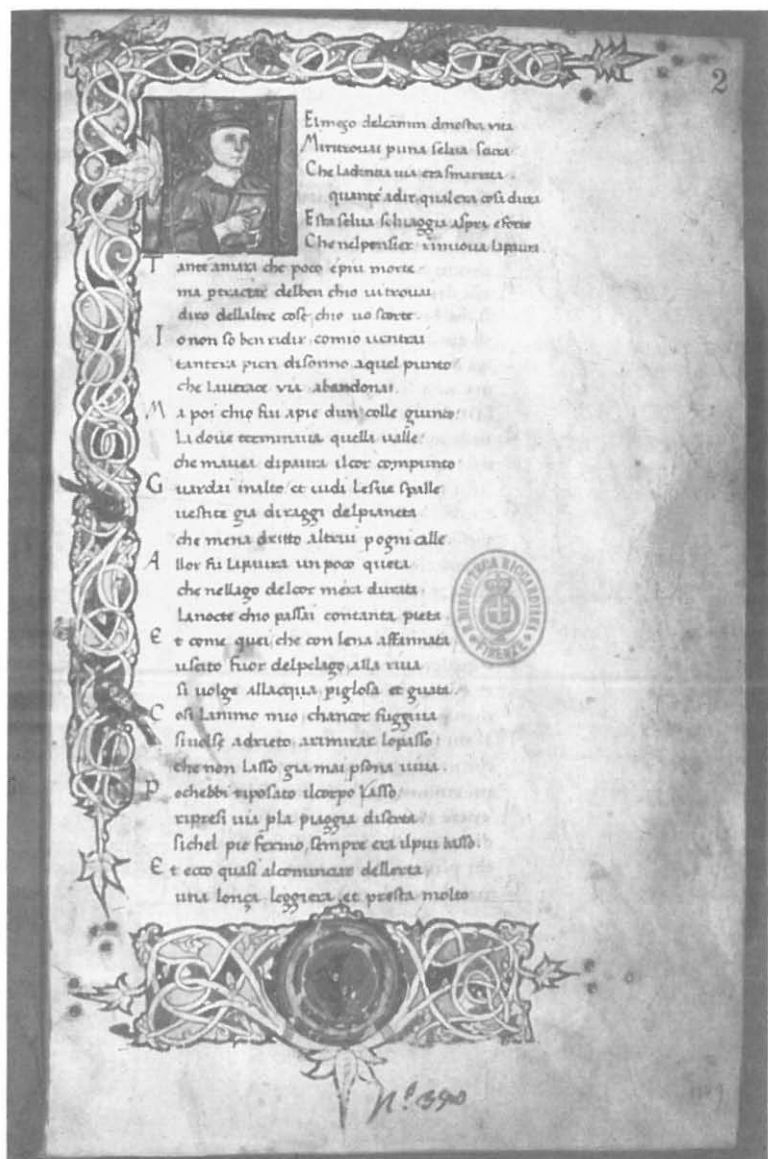 2
El mezo delcamin dinostra vita
Mi ritrouai p una selua scura
Che ladiricta uia era smarrita
quanté adir qual era cosa dura
Esta selua seluaggia aspra eforte
Che nel pensier rinuoua lapaura
Tante amara che poco é piu morte
ma p tractar delben chio ui trouai
diro dellaltre cose chio uo scorte
Io non so ben ridir comio uentrai
tantera pien disonno aquel punto
che lauerace via abandonai.
Ma poi chio fui apie dun colle giunto
La doue terminaua quella ualle
che mauea dipaura ilcor compunto
Guardai inalto et uidi Lesue spalle
uestite gia diraggi delpianeta
che mena dritto altrui p ogni calle
Allor fu Lapaura un poco queta
che nellago delcor mera durata
lanocte chio passai contanta pieta
Et come quei che con lena affannata
uscito fuor delpelago alla riua
si uolge allacqua piglosa et guata
Cosi lanimo mio chancor fuggiua
siuolse adrieto arimirar lopasso
che non lasso gia mai psona uiua
Pochebbi riposato ilcorpo lasso
ripresi uia pla piaggia diserta
sichel pie fermo sempre era ilpiu basso
Et ecco quasi alcominciar dellerta
una lonça leggiera et presta molto
BIBLIOTECA RICCARDIANA
FIRENZE
N.º 390